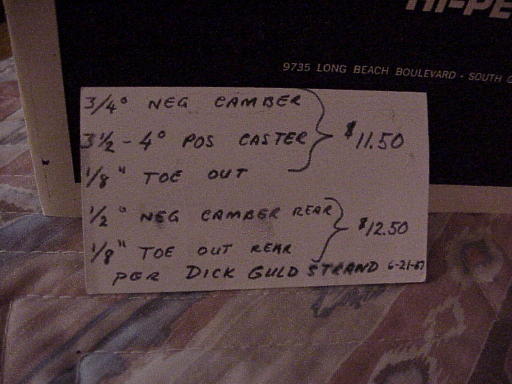 HI-PE
9735 LONG BEACH BOULEVARD - SOUTH G
3/4° NEG CAMBER
3 1/2 - 4° POS CASTER $11.50
1/8" TOE OUT
1/2° NEG CAMBER REAR
1/8" TOE OUT REAR $12.50
PER DICK GULDSTRAND 6-21-67